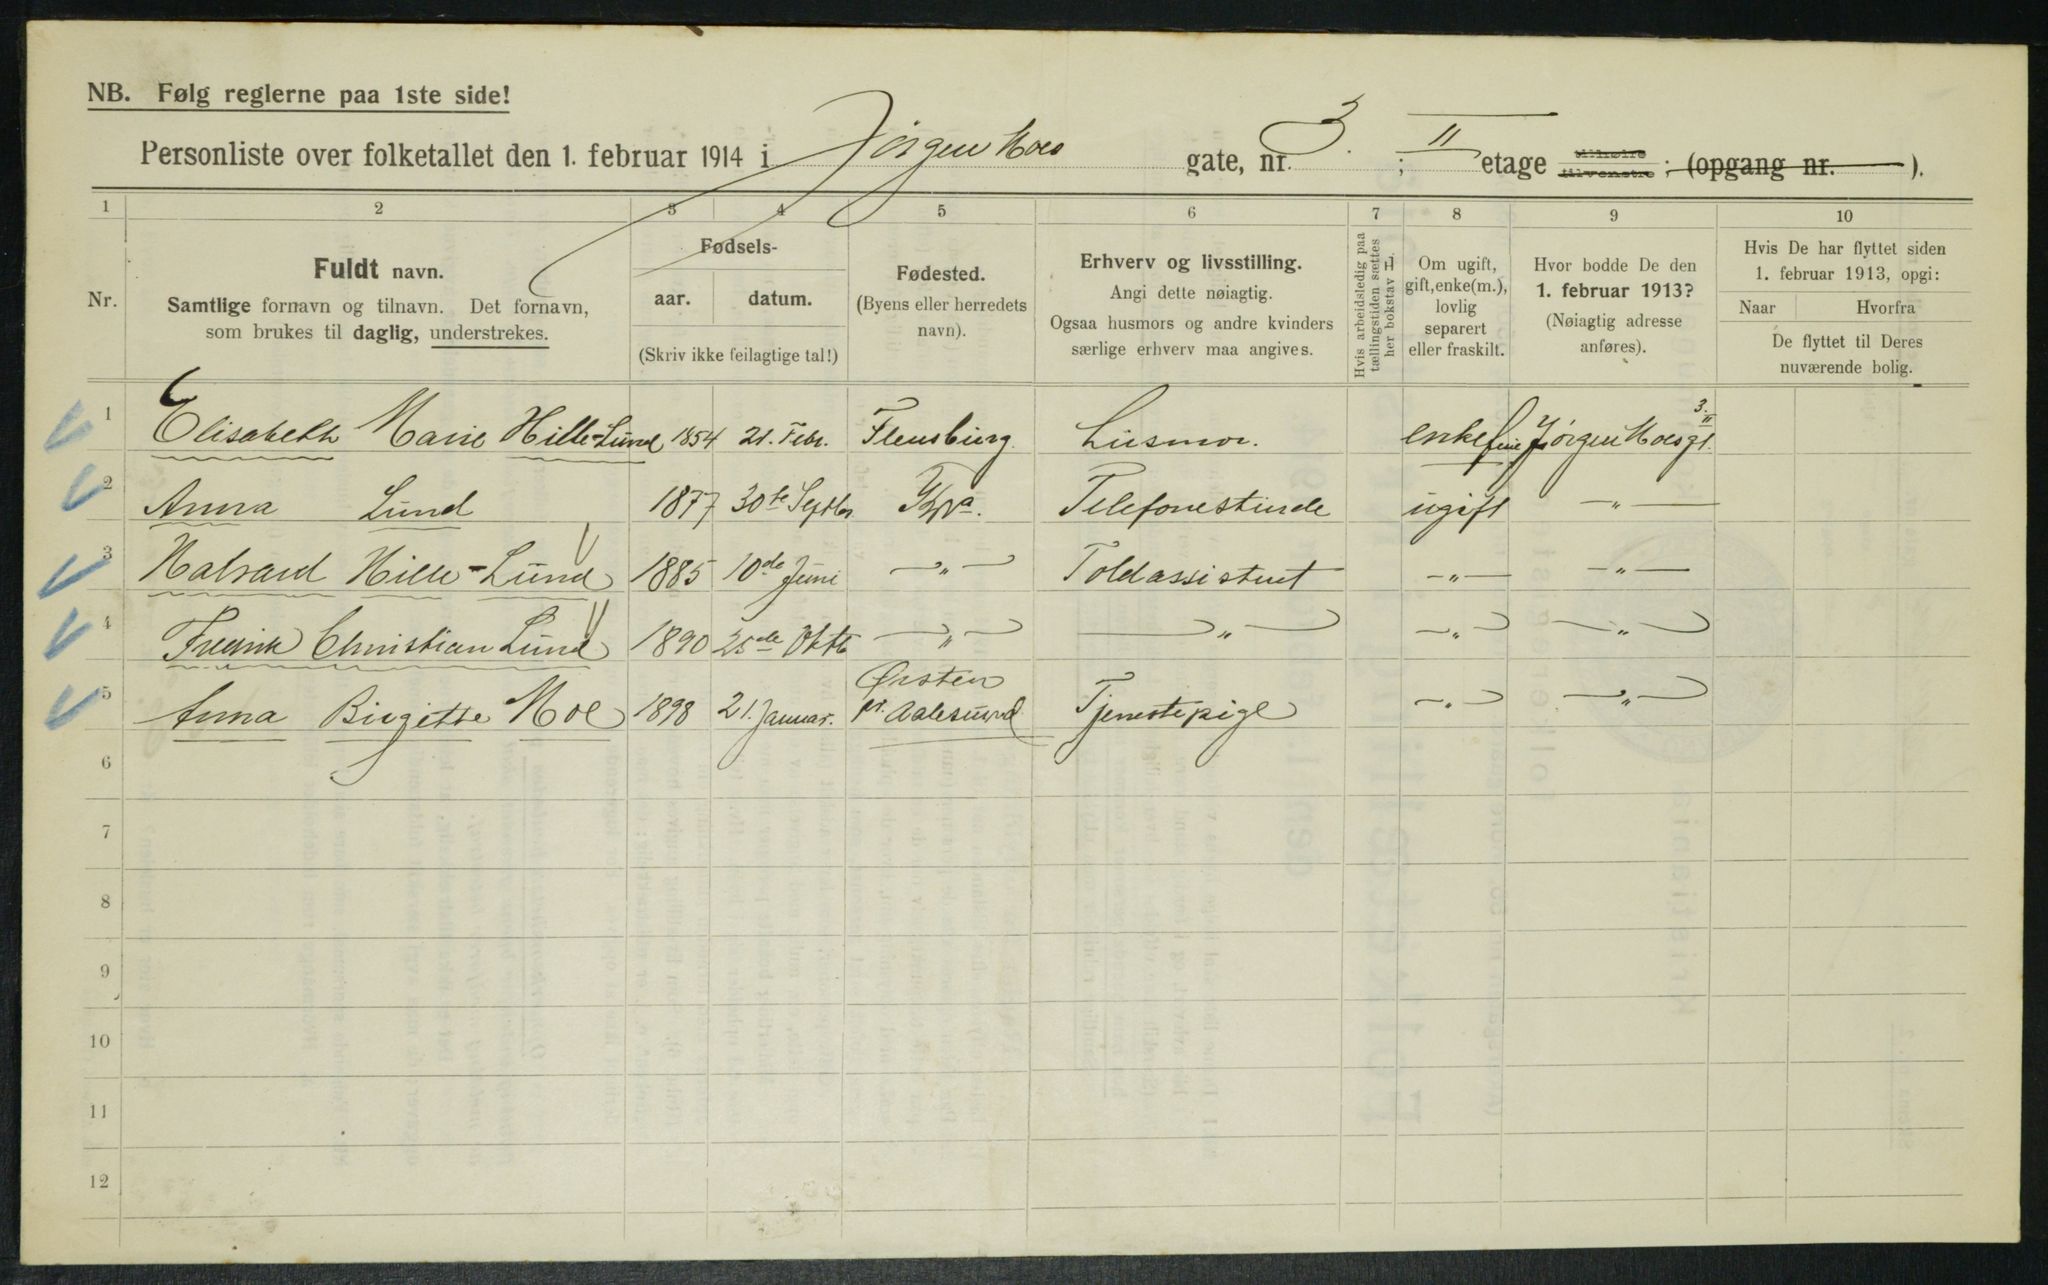 NB. Følg reglerne paa 1ste side!
Personliste over folketallet den 1. februar 1914 i Jørgen Moes gate, nr. 3. ; II etage tilhøire tilvenstre ; (opgang nr. ).
1 2 3 4 5 6 7 8 9 10
Nr.
Fuldt navn.
Samtlige fornavn og tilnavn. Det fornavn,
som brukes til daglig, understrekes.
Fødsels-
aar. datum.
(Skriv ikke feilagtige tal!)
Fødested.
(Byens eller herredets
navn).
Erhverv og livsstilling.
Angi dette nøiagtig.
Ogsaa husmors og andre kvinders
særlige erhverv maa angives.
Hvis arbeidsledig paa
tællingstiden sættes
her bokstav L
Om ugift,
gift, enke(m.),
lovlig
separert
eller fraskilt.
Hvor bodde De den
1. februar 1913?
(Nøiagtig adresse
anføres).
Hvis De har flyttet siden
1. februar 1913, opgi:
Naar Hvorfra
De flyttet til Deres
nuværende bolig.
1 Elisabeth Marie Hille-Lund 1854 21. Febr. Flensburg. Husmor. enkefrue Jørgen Moesgt. 3. II
2 Anna Lund 1877 30te Septbr Kra. Telefonestinde ugift —„—
3 Halvard Hille-Lund 1885 10de Juni —„— Toldassistent —„— —„—
4 Fredrik Christian Lund 1890 25de Oktb —„— —„— —„— —„—
5 Anna Birgitte Moe 1898 21. Januar. Ørsten pr. Aalesund Tjenestepige —„— —„—
6
7
8
9
10
11
12